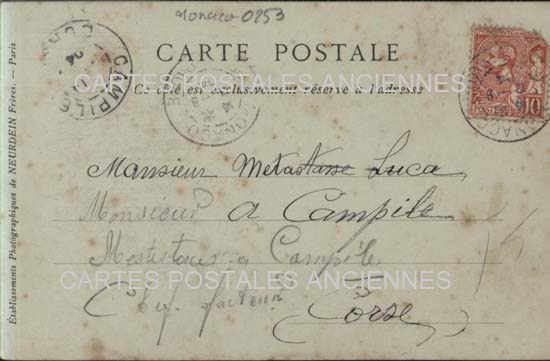 Monaco 0253
CARTE POSTALE
Ce côté est exclusivement réservé à l'adresse
CAMPILE
MONACO
MONACO
10
Établissements Photographiques de NEURDEIN Frères. — Paris
Monsieur Metastase Luca
Monsieur a Campile
a Campile
CARTES POSTALES ANCIENNES
CARTES POSTALES ANCIENNES
Corse